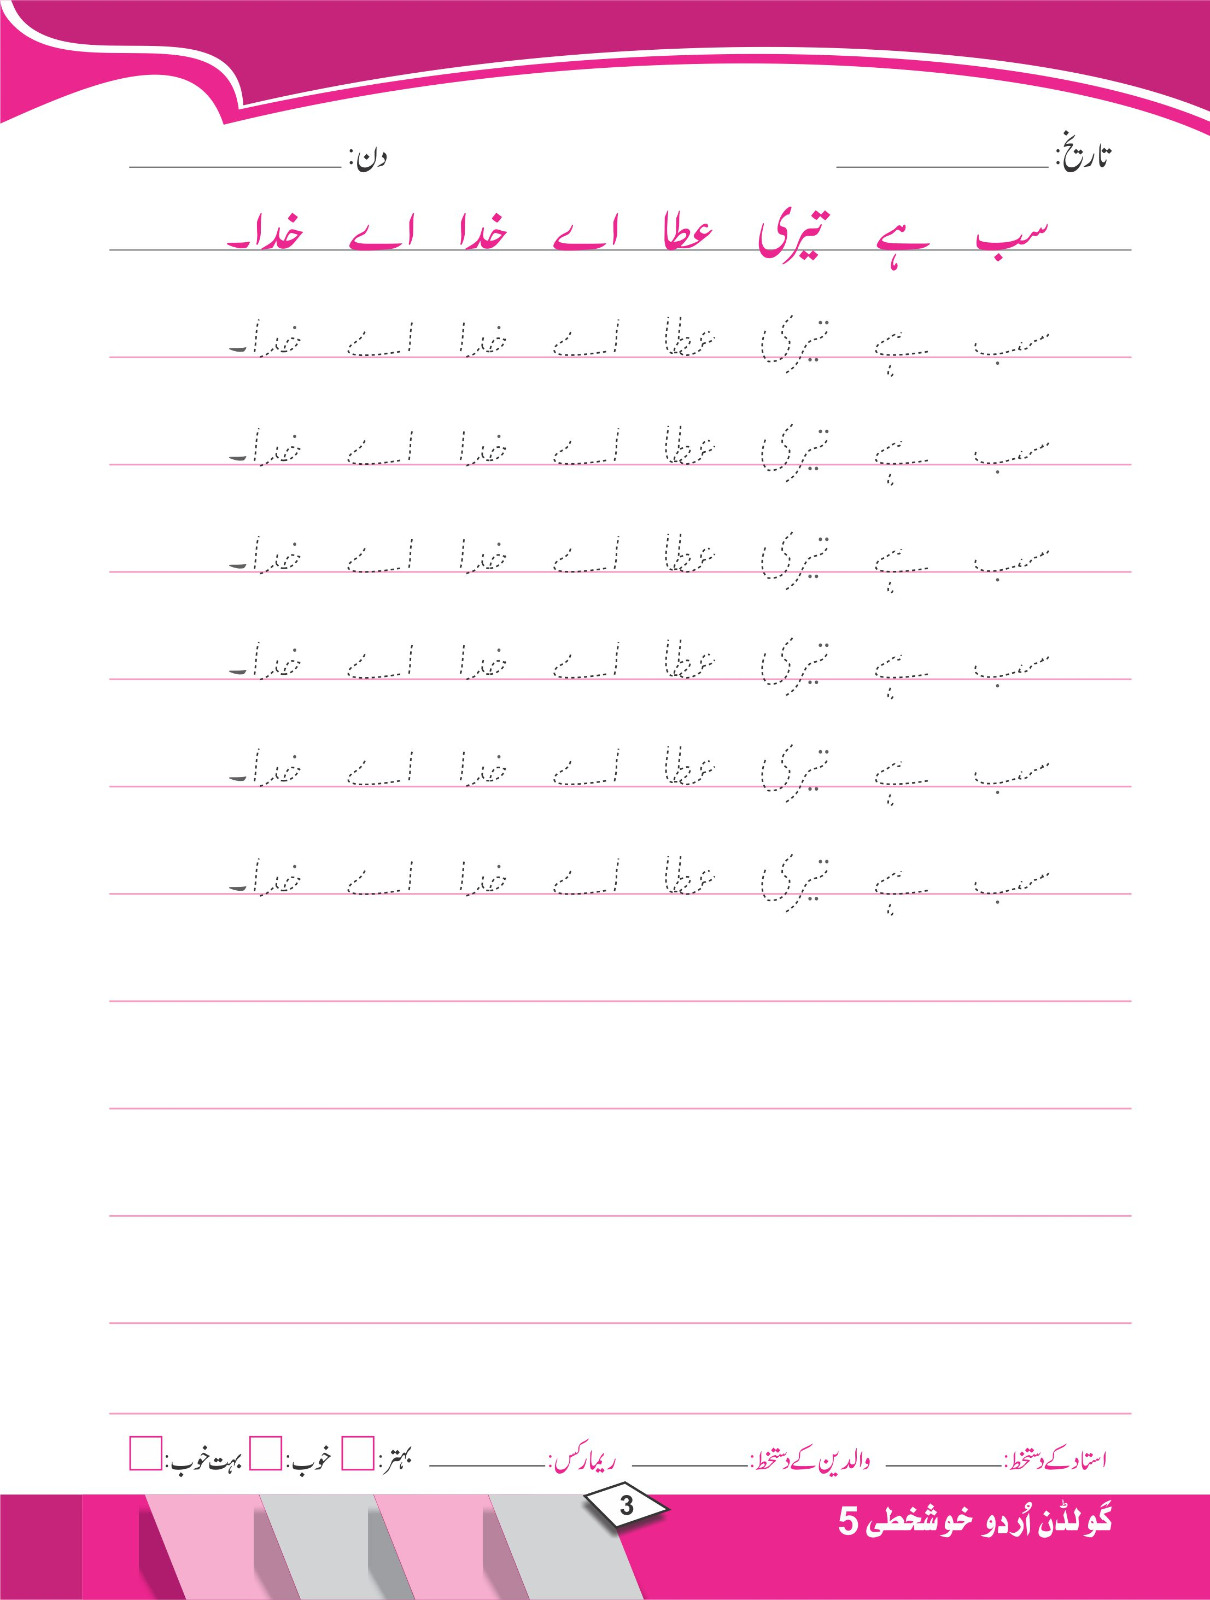 تاریخ: دن:
سب ہے تیری عطا اے خدا اے خدا۔
سب ہے تیری عطا اے خدا اے خدا۔
سب ہے تیری عطا اے خدا اے خدا۔
سب ہے تیری عطا اے خدا اے خدا۔
سب ہے تیری عطا اے خدا اے خدا۔
سب ہے تیری عطا اے خدا اے خدا۔
سب ہے تیری عطا اے خدا اے خدا۔
استاد کے دستخط: والدین کے دستخط: ریمارکس: بہتر: خوب: بہت خوب:
گولڈن اُردو خوشخطی 5
3